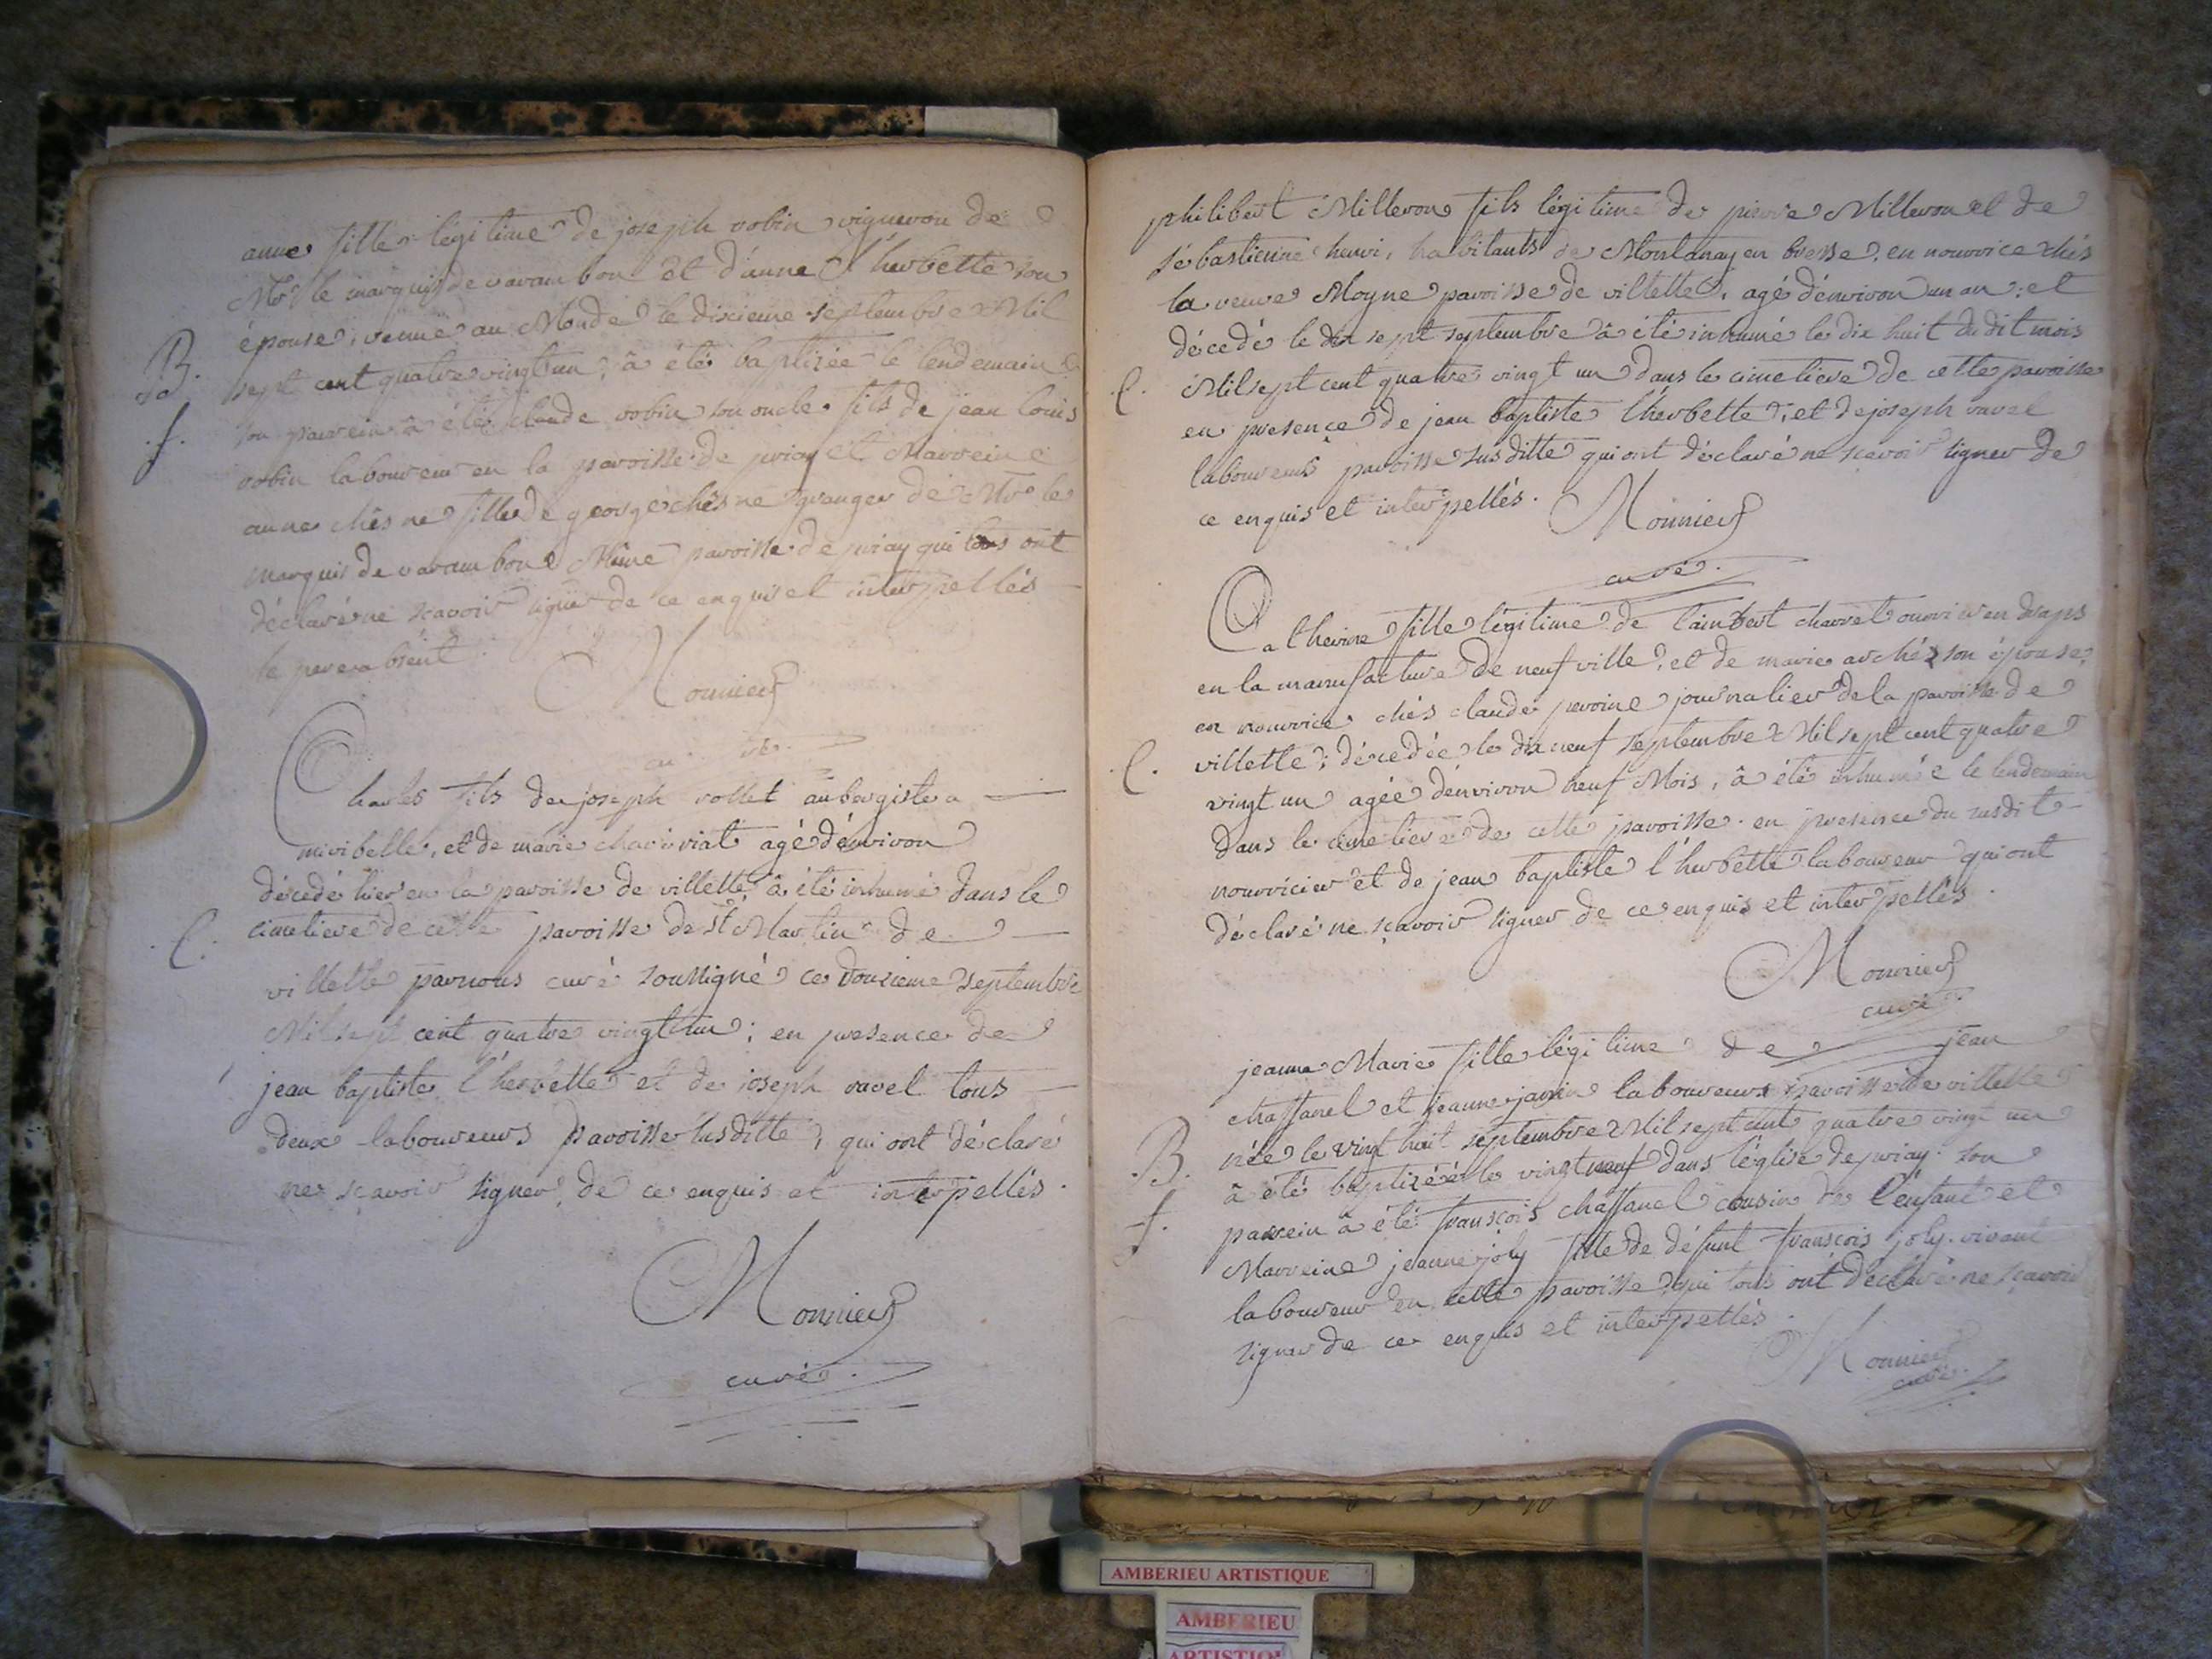 anne fille légitime de joseph robin vigneron de
Mr le marquis de varambon et d'anne l'herbette son
épouse, venüe au Monde le dixieme septembre Mil
B.
sept cent quatre vingt un, à été baptizée le lendemain
f.
son parrein à été claude robin son oncle fils de jean louis
robin laboureur en la paroisse de priay et Marreine
anne chêsne fille de george chêsne granger de Mr le
marquis de varambon Même paroisse de priay qui tous ont
déclaré ne sçavoir signer de ce enquis et interpellés
le pere absent.
Monnier
curé.
Charles fils de joseph rollet aubergiste a
miribelle, et de marie agé d'environ
décedé hier en la paroisse de villette à été inhumé dans le
C.
cimetiere de cette paroisse de st Martin de
villette par nous curé soussigné ce douzieme septembre
Mil sept cent quatre vingt un; en presence de
jean baptiste l'herbette et de joseph ravel tous
deux laboureurs paroisse susditte, qui ont déclaré
ne sçavoir signer, de ce enquis et interpellés.
Monnier
curé.
philibert Milleron fils légitime de pierre Milleron et de
sébastienne henri, habitants de Montanay en bresse, en nourrice chés
la veuve Moyne paroisse de villette, agé d'environ un an; et
décedé le dix sept septembre à été inhumé le dix huit du dit mois
C.
Mil sept cent quatre vingt un dans le cimetiere de cette paroisse
en presence de jean baptiste l'herbette, et de joseph ravel
laboureurs paroisse susditte qui ont déclaré ne scavoir signer de
ce enquis et interpellés.
Monnier
curé.
Catherine fille légitime de lambert charvet ouvrier en draps
en la manufacture de neufville, et de marie arché son épouse,
en nourrice chés claude peroine journalier de la paroisse de
C.
villette; décedée le dix neuf septembre Mil sept cent quatre
vingt un agée d'environ neuf Mois, à été inhumée le lendemain
dans le cimetiere de cette paroisse. en presence du susdit
nourricier et de jean baptiste l'herbette laboureur qui ont
déclaré ne sçavoir signer de ce enquis et interpellés.
Monnier
curé
jeanne Marie fille légitime de jean
chaffanel et jeanne janin laboureurs paroisse de villette
B.
née le vingt huit septembre Mil sept cent quatre vingt un
à été baptizée le vingt neuf dans l'église de priay. son
f.
parrein à été françois chaffanel cousin de l'enfant et
Marreine jeanne joly fille de défunt françois joly vivant
laboureur en cette paroisse, qui tous ont déclaré ne sçavoir
signer de ce enquis et interpellés.
Monnier
curé.
AMBERIEU ARTISTIQUE
AMBERIEU
ARTISTIQUE